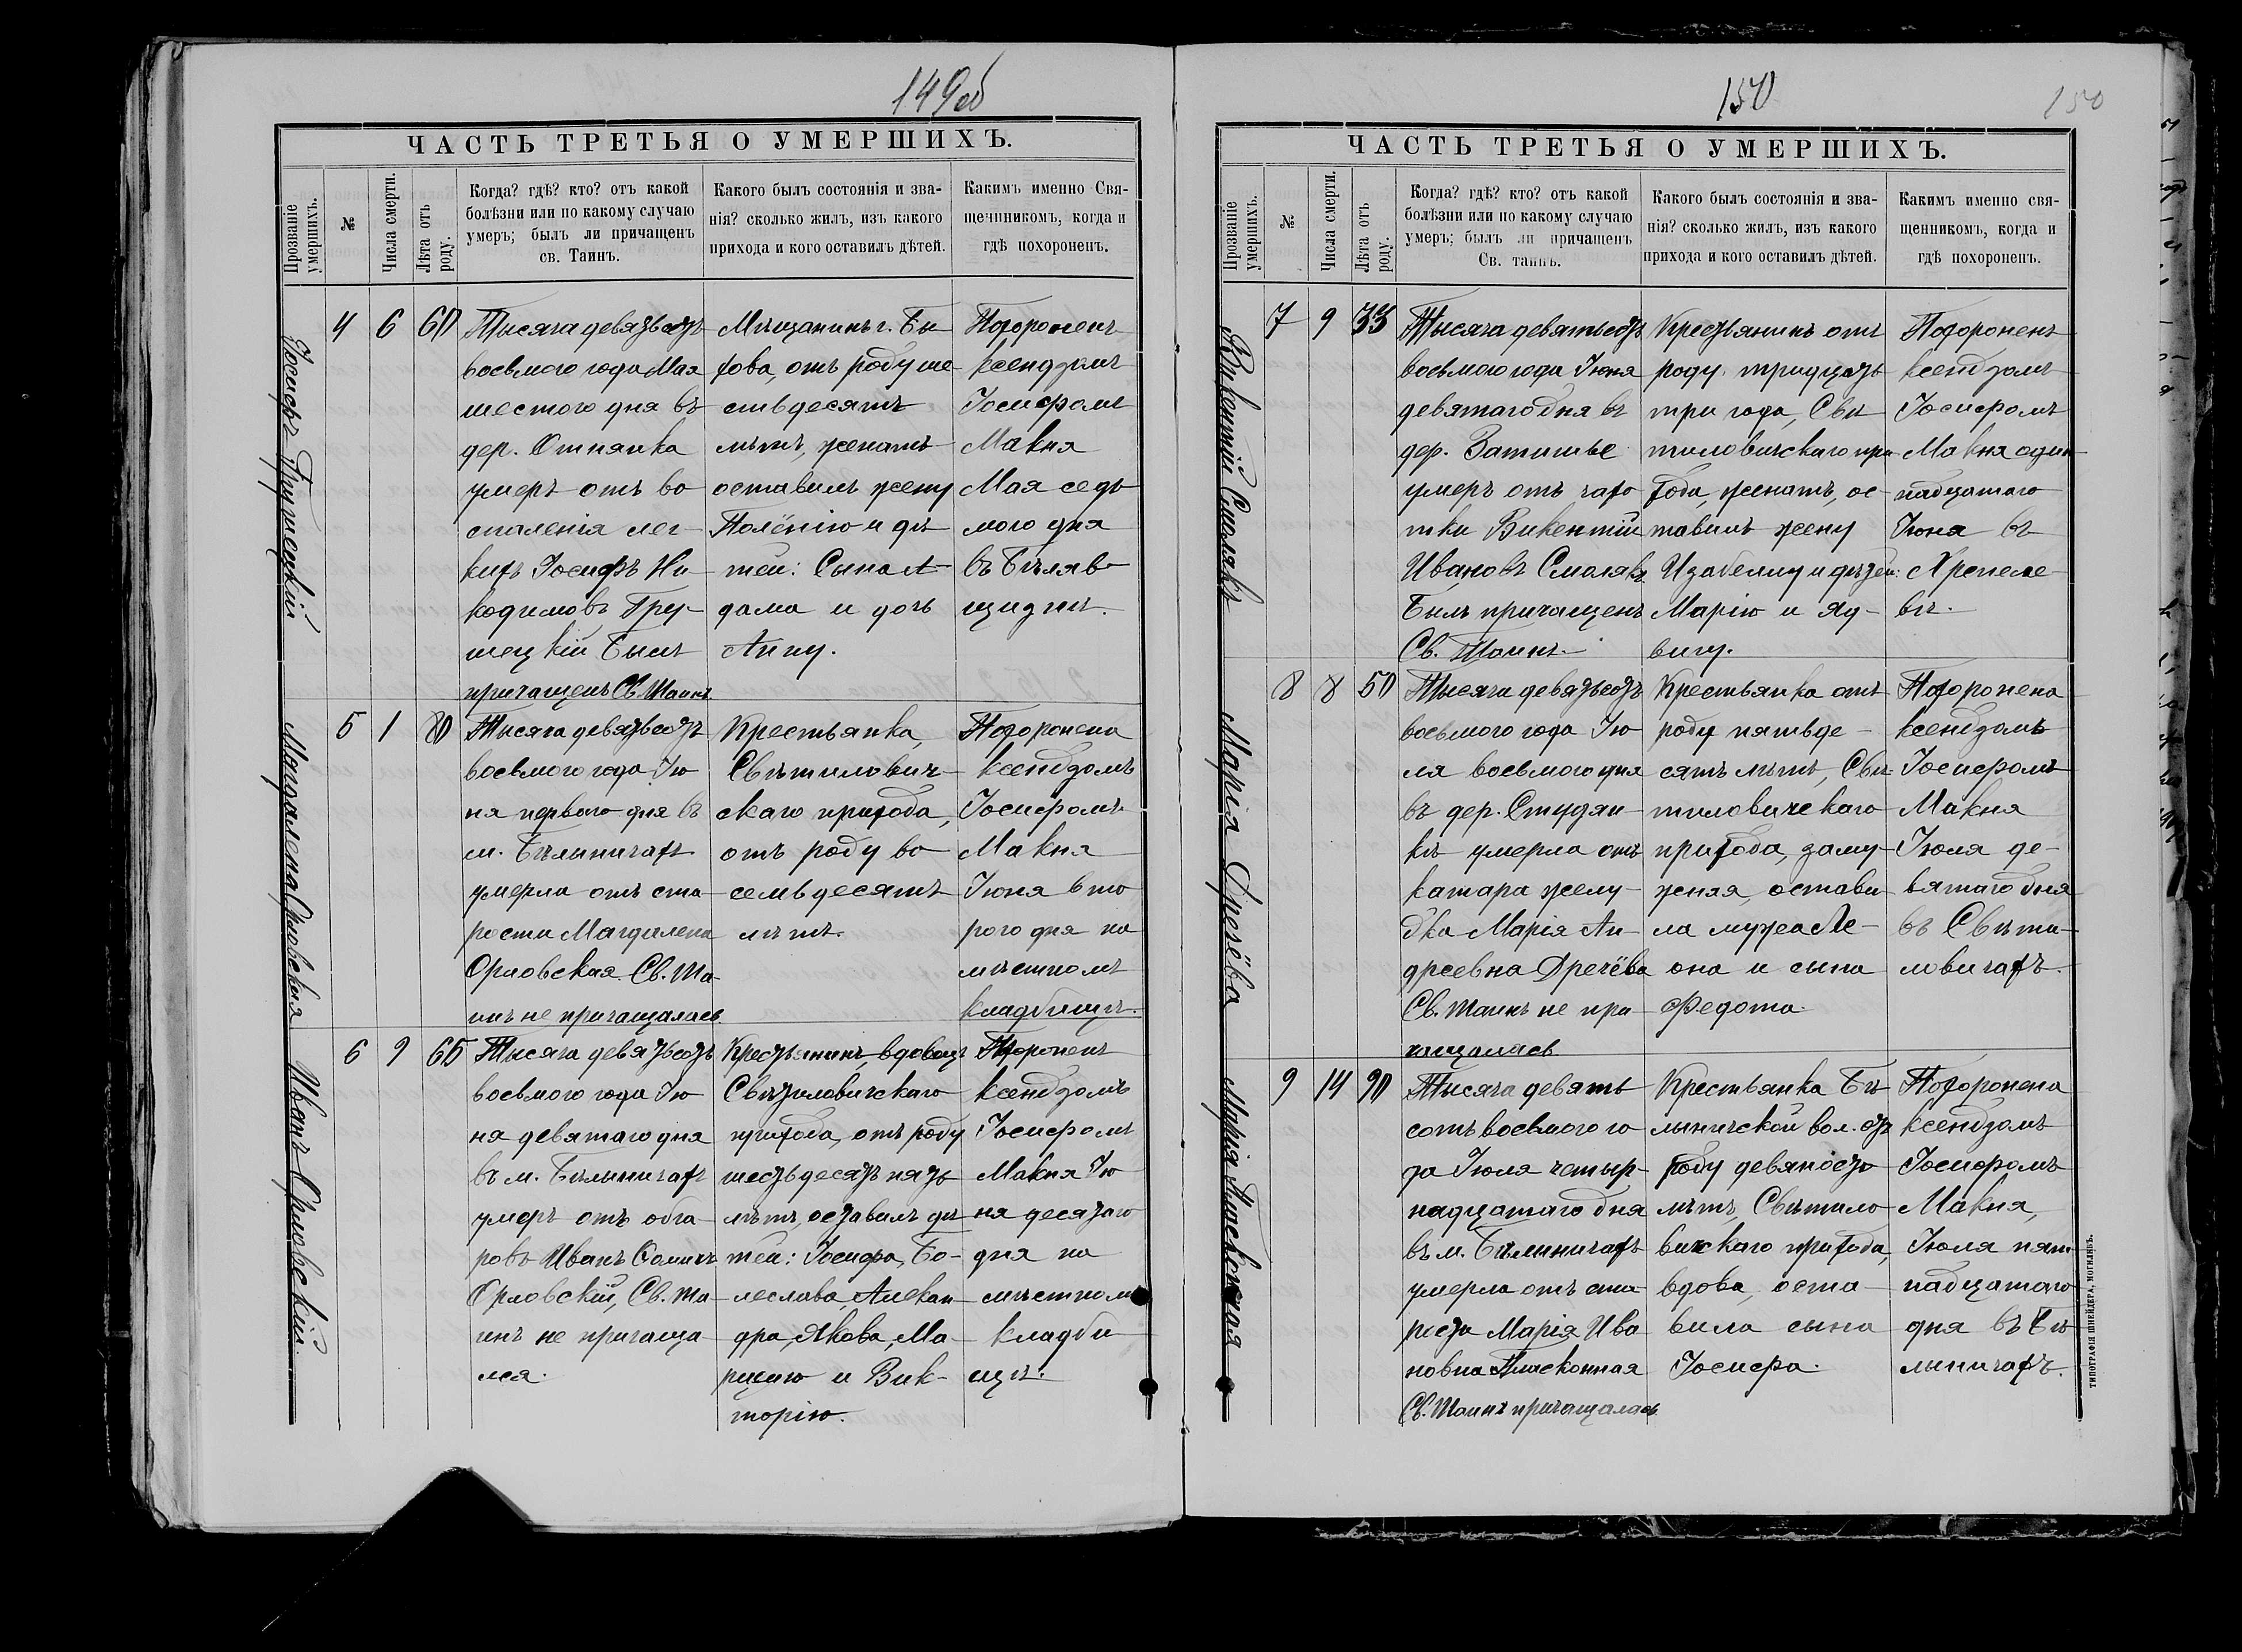 149об
ЧАСТЬ ТРЕТЬЯ О УМЕРШИХЪ.
Прозваніе умершихъ.
№
Числа смерти.
Лѣта отъ роду.
Когда? гдѣ? кто? отъ какой
болѣзни или по какому случаю
умеръ; былъ ли причащенъ
св. Таинъ.
Какого былъ состоянія и зва-
нія? сколько жилъ, изъ какого
прихода и кого оставилъ дѣтей.
Какимъ именно Свя-
щенникомъ, когда и
гдѣ похороненъ.
Іосифъ Грушецкій
4
6
60
Тысяча девятьсотъ
восьмого года Мая
шестого дня въ
дер. Отпянка
умеръ отъ во
спаленія лег-
кихъ Іосифъ Ни-
кодимовъ Гру-
шецкій Былъ
причащенъ Св. Таинъ
Мѣщанинъ г. Бы
хова, отъ роду ше-
стьдесятъ
лѣтъ, женатъ
оставилъ жену
Полёнію и дѣ
тей: Сына А-
дама и дочь
Анну.
Похороненъ
ксендзомъ
Іосифомъ
Макня
Мая седь
мого дня
въ Бѣляв-
щизнѣ.
Магдалена Орловская
5
1
80
Тысяча девятьсотъ
восьмого года Ію
ня первого дня въ
м. Бѣлыничахъ
умерла отъ ста-
рости Магдалена
Орловская Св. Та-
инъ не причащалась.
Крестьянка,
Свѣтилович-
скаго прихода,
отъ роду во
семьдесятъ
лѣтъ.
Похоронена
ксендзомъ
Іосифомъ
Макня
Іюня вто
рого дня на
мѣстномъ
кладбищѣ.
Иванъ Орловскій
6
9
65
Тысяча девятьсотъ
восьмого года Ію
ня девятаго дня
въ м. Бѣлыничахъ
умеръ отъ обжо-
ровъ Иванъ
Орловскій, Св. Та-
инъ не причаща-
лся.
Крестьянинъ, вдовецъ
Свѣтиловичскаго
прихода, отъ роду
шестьдесятъ пять
лѣтъ, оставилъ дѣ
тей: Іосифа, Бо-
леслава, Алексан
дра, Якова, Ма-
рцию и Вик-
торію.
Похороненъ
ксендзомъ
Іосифомъ
Макня Ію
ня десятаго
дня на
мѣстномъ
кладби
щѣ.
150
150
ЧАСТЬ ТРЕТЬЯ О УМЕРШИХЪ.
Прозваніе умершихъ.
№
Числа смерти.
Лѣта отъ роду.
Когда? гдѣ? кто? отъ какой
болѣзни или по какому случаю
умеръ; былъ ли причащенъ
Св. таинъ.
Какого былъ состоянія и зва-
нія? сколько жилъ, изъ какого
прихода и кого оставилъ дѣтей.
Какимъ именно свя-
щенникомъ, когда и
гдѣ похороненъ.
Викентій Смолякъ
7
9
33
Тысяча девятьсотъ
восьмого года Іюня
девятаго дня въ
дер. Затишье
умеръ отъ чахо
тки Викентій
Ивановъ Смолякъ
Былъ причащенъ
Св. Таинъ.
Крестьянинъ отъ
роду тридцать
три года, Свѣ
тиловичскаго при
хода, женатъ, ос-
тавилъ жену
Изабеллу и дѣтей:
Марію и Яд-
вигу.
Похороненъ
ксендзомъ
Іосифомъ
Макня один-
надцатаго
Іюня въ
Хрепеле-
вѣ.
Марія Дречёва
8
8
50
Тысяча девятьсотъ
восьмого года Ію
ля восьмого дня
въ дер. Студян-
кѣ умерла отъ
катара желу-
дка Марія Ан-
дреевна Дречёва
Св. Таинъ не при
чащалась
Крестьянка отъ
роду пятьде-
сятъ лѣтъ, Свѣ-
тиловичскаго
прихода, заму-
жняя, остави
ла мужа Ле-
она и сына
Федота.
Похоронена
ксендзомъ
Іосифомъ
Макня
Іюля де-
вятаго дня
въ Свѣти-
ловичахъ.
Марія
9
14
90
Тысяча девять
сотъ восьмого го
да Іюля четыр-
надцатаго дня
въ м. Бѣлыничахъ
умерла отъ ста
рости Марія Ива
новна
Св. Таинъ причащалась
Крестьянка Бѣ-
лыничской вол. отъ
роду девяносто
лѣтъ, Свѣтило
вичскаго прихода,
вдова, оста-
вила сына
Іосифа.
Похоронена
ксендзомъ
Іосифомъ
Макня,
Іюля пят-
надцатаго
дня въ Бѣ-
лыничахъ.
ТИПОГРАФІЯ ШНЕЙДЕРА, МОГИЛЕВЪ.